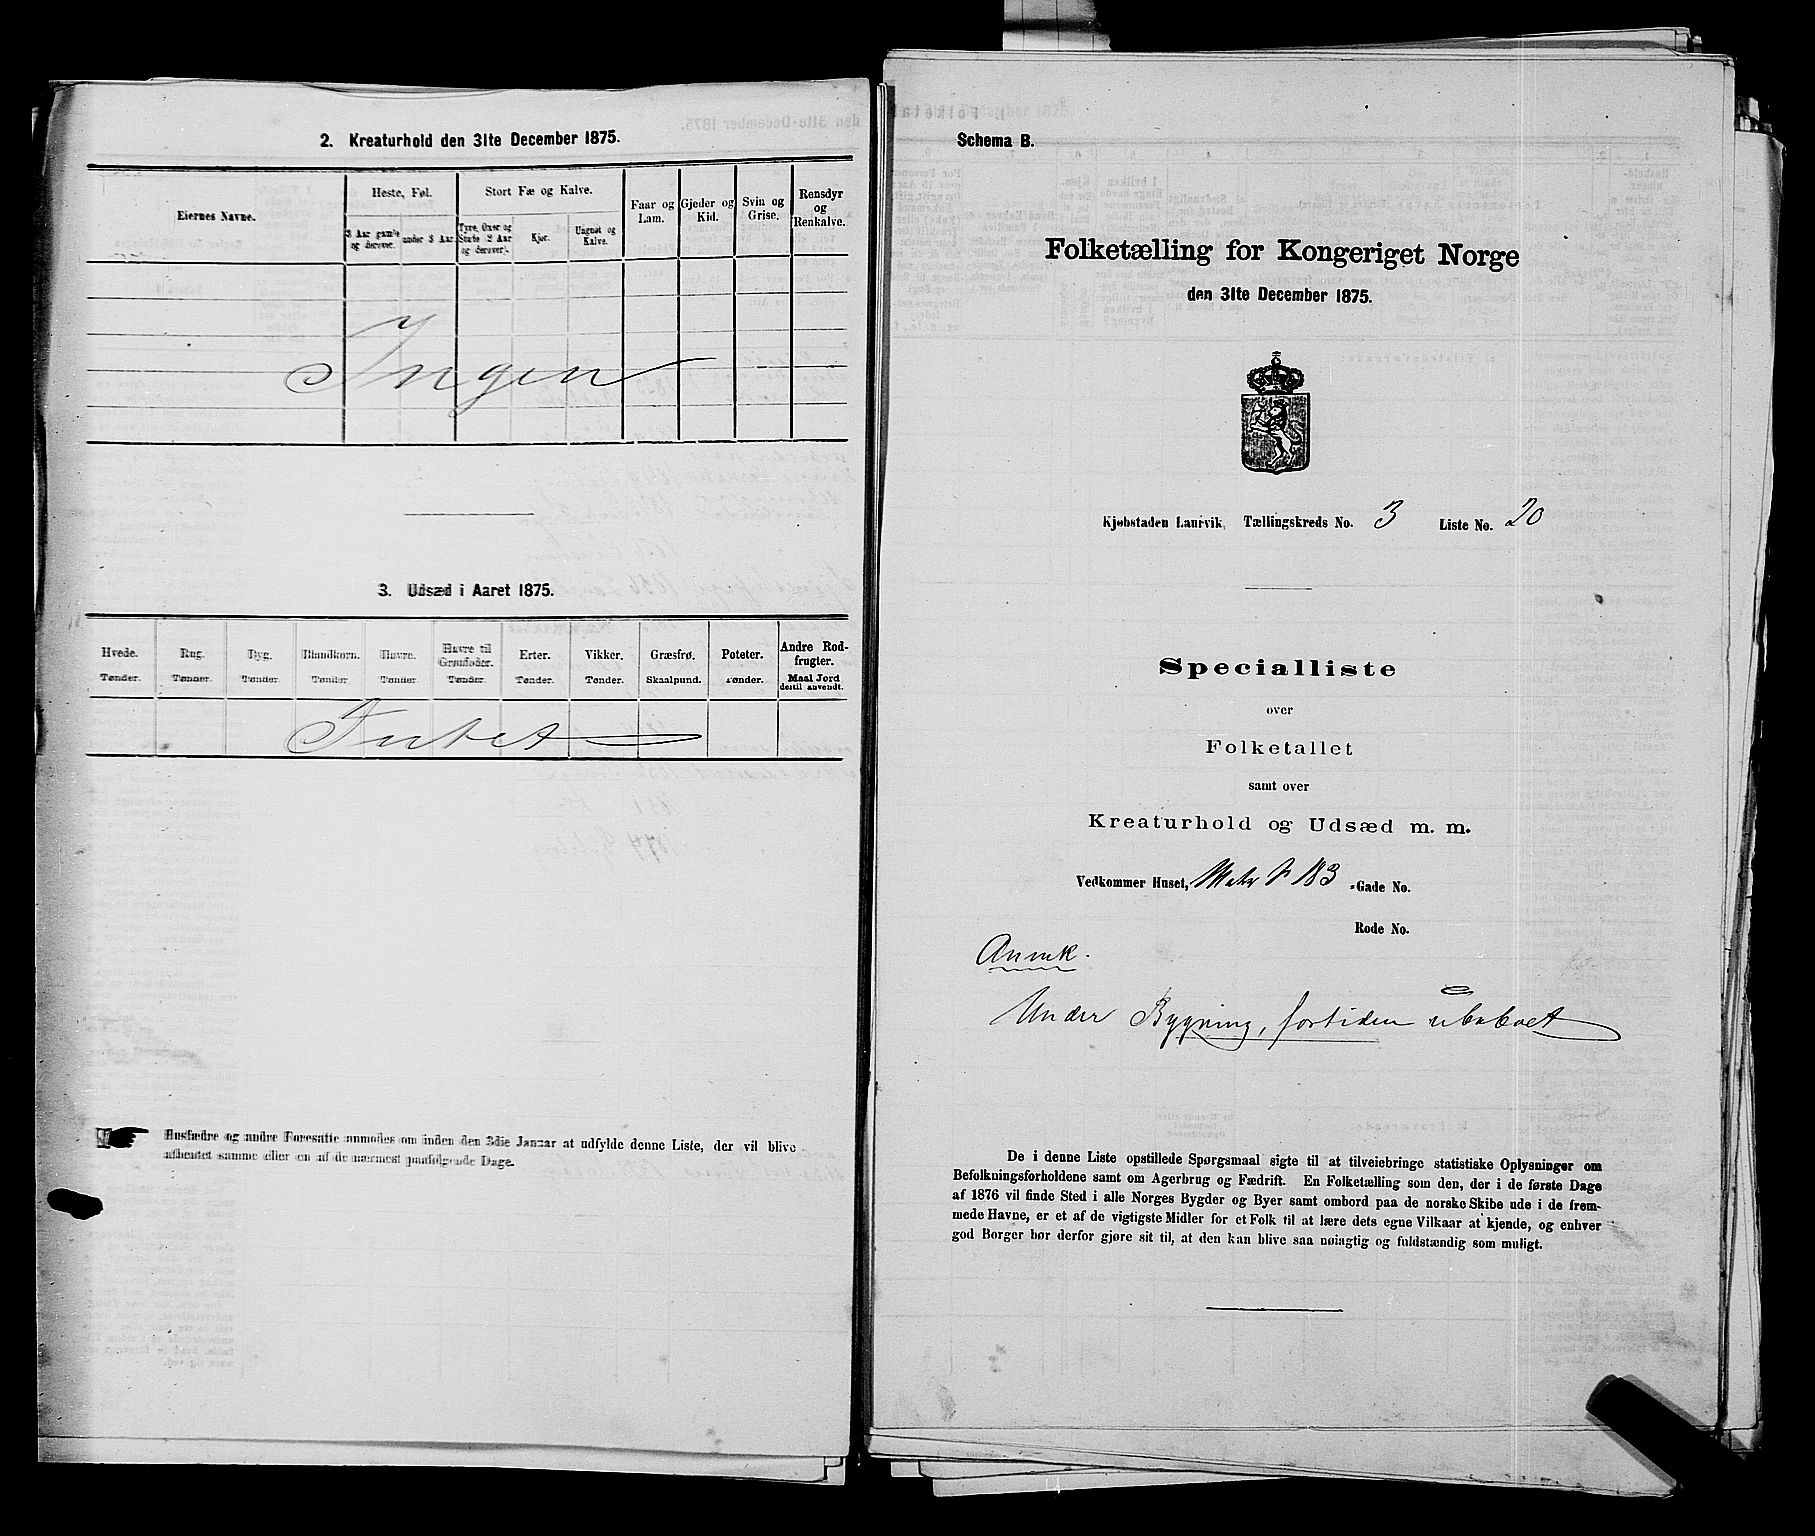 2. Kreaturhold den 31te December 1875.
Eiernes Navne.
Heste, Føl.
3 Aar gamle og derover.
under 3 Aar.
Stort Fæ og Kalve.
Tyre, Oxer og Stude (2 Aar og derover).
Kjør.
Ungnøt og Kalve.
Faar og Lam.
Gjeder og Kid.
Svin og Grise.
Rensdyr og Renkalve.
Ingen
3. Udsæd i Aaret 1875.
Hvede. Rug. Byg. Blandkorn. Havre. Havre til Grønfoder. Erter. Vikker. Græsfrø. Poteter. Andre Rodfrugter.
Tønder. Tønder. Tønder. Tønder. Tønder. Tønder. Tønder. Tønder. Skaalpund. Tønder. Maal Jord dertil anvendt.
Intet
Husfædre og andre Foresatte anmodes om inden den 3die Januar at udfylde denne Liste, der vil blive
afhentet samme eller en af de nærmest paafølgende Dage.
Schema B.
Folketælling for Kongeriget Norge
den 31te December 1875.
Kjøbstaden Laurvik, Tællingskreds No. 3 Liste No. 20
Specialliste
over
Folketallet
samt over
Kreaturhold og Udsæd m. m.
Vedkommer Huset, Matr 183 -Gade No.
Rode No.
Anmk.
Under Bygning, fortiden ubeboet
De i denne Liste opstillede Spørgsmaal sigte til at tilveiebringe statistiske Oplysninger om
Befolkningsforholdene samt om Agerbrug og Fædrift. En Folketælling som den, der i de første Dage
af 1876 vil finde Sted i alle Norges Bygder og Byer samt ombord paa de norske Skibe ude i de frem-
mede Havne, er et af de vigtigste Midler for et Folk til at lære dets egne Vilkaar at kjende, og enhver
god Borger bør derfor gjøre sit til, at den kan blive saa nøiagtig og fuldstændig som muligt.